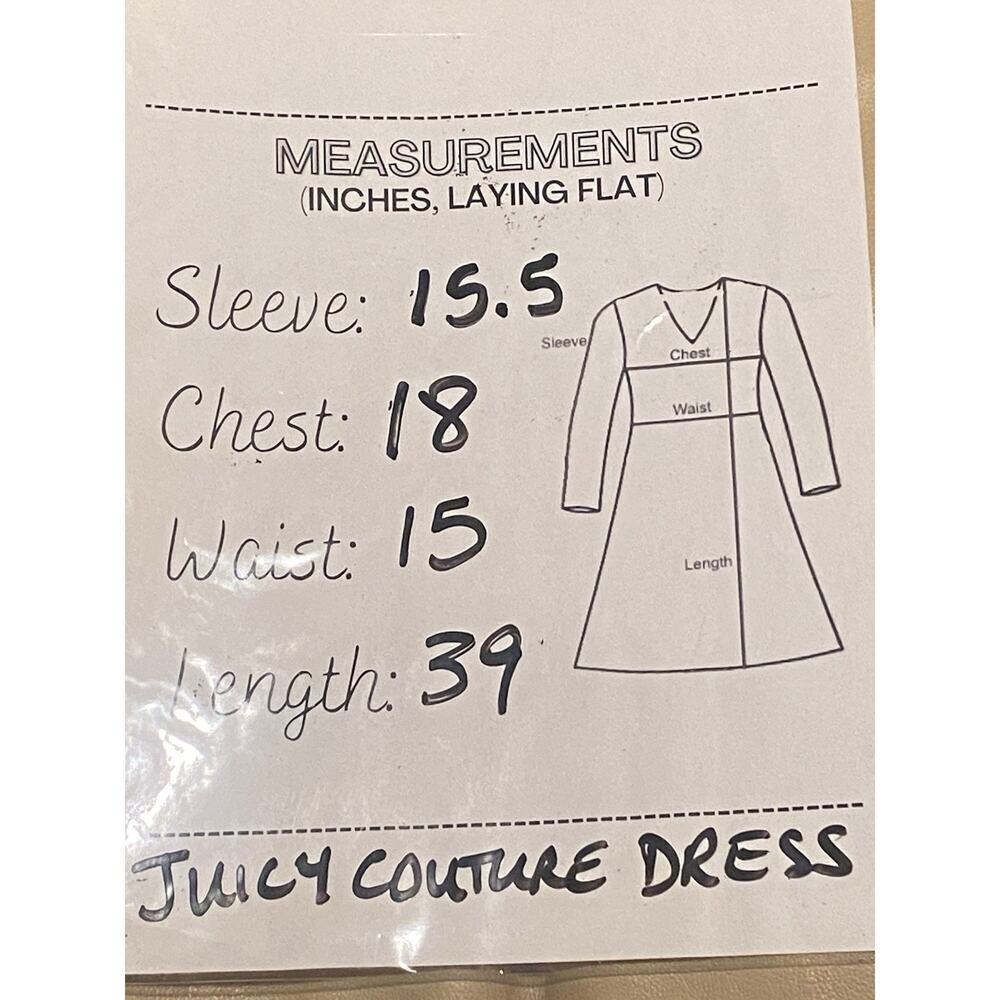 MEASUREMENTS
(INCHES, LAYING FLAT)
Sleeve: 15.5
Chest: 18
Waist: 15
Length: 39
Sleeve
Chest
Waist
Length
JUICY COUTURE DRESS